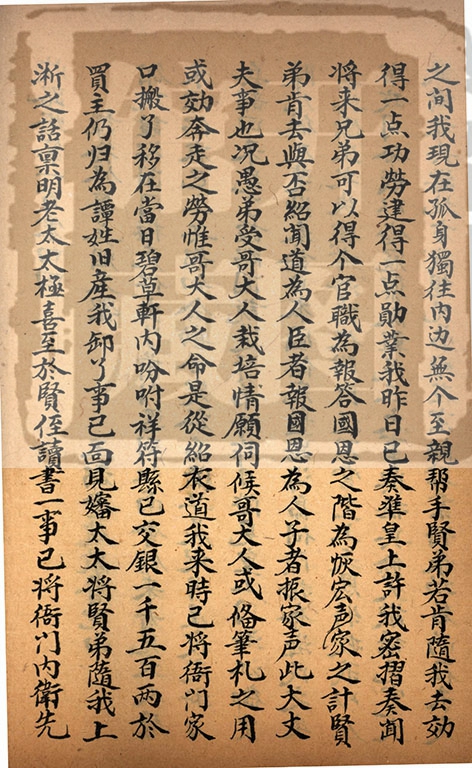 之间我現在孤身獨往内边無个至親帮手賢弟若肯隨我去効
得一点功勞建得一点勛業我昨日已奏准皇上許我密摺奏闻
将来兄弟可以得个官職為報答國恩之階為恢宏声家之計賢
弟肯去與否紹闻道為人臣者報國恩為人子者振家声此大丈
夫事也况愚弟受哥大人栽培情願伺候哥大人或俻筆札之用
或効奔走之勞惟哥大人之命是從紹衣道我来時已将衙门家
口搬了移在當日碧草軒内吩咐祥符縣已交銀一千五百两於
買主仍归為譚姓旧産我卸了事已面見嬸太太将賢弟隨我上
淅之話禀明老太太極喜至於賢侄讀書一事已将衙门内衛先